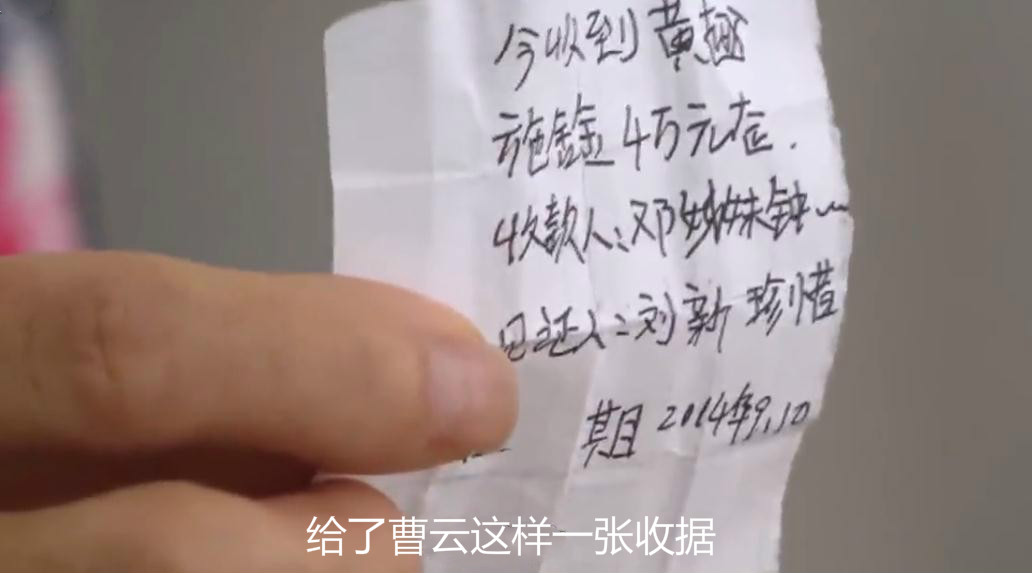 今收到黄
施金4万元左.
收款人:邓 妹钟
见证人:刘新珍惜
其目2014年9.10
给了曹云这样一张收据